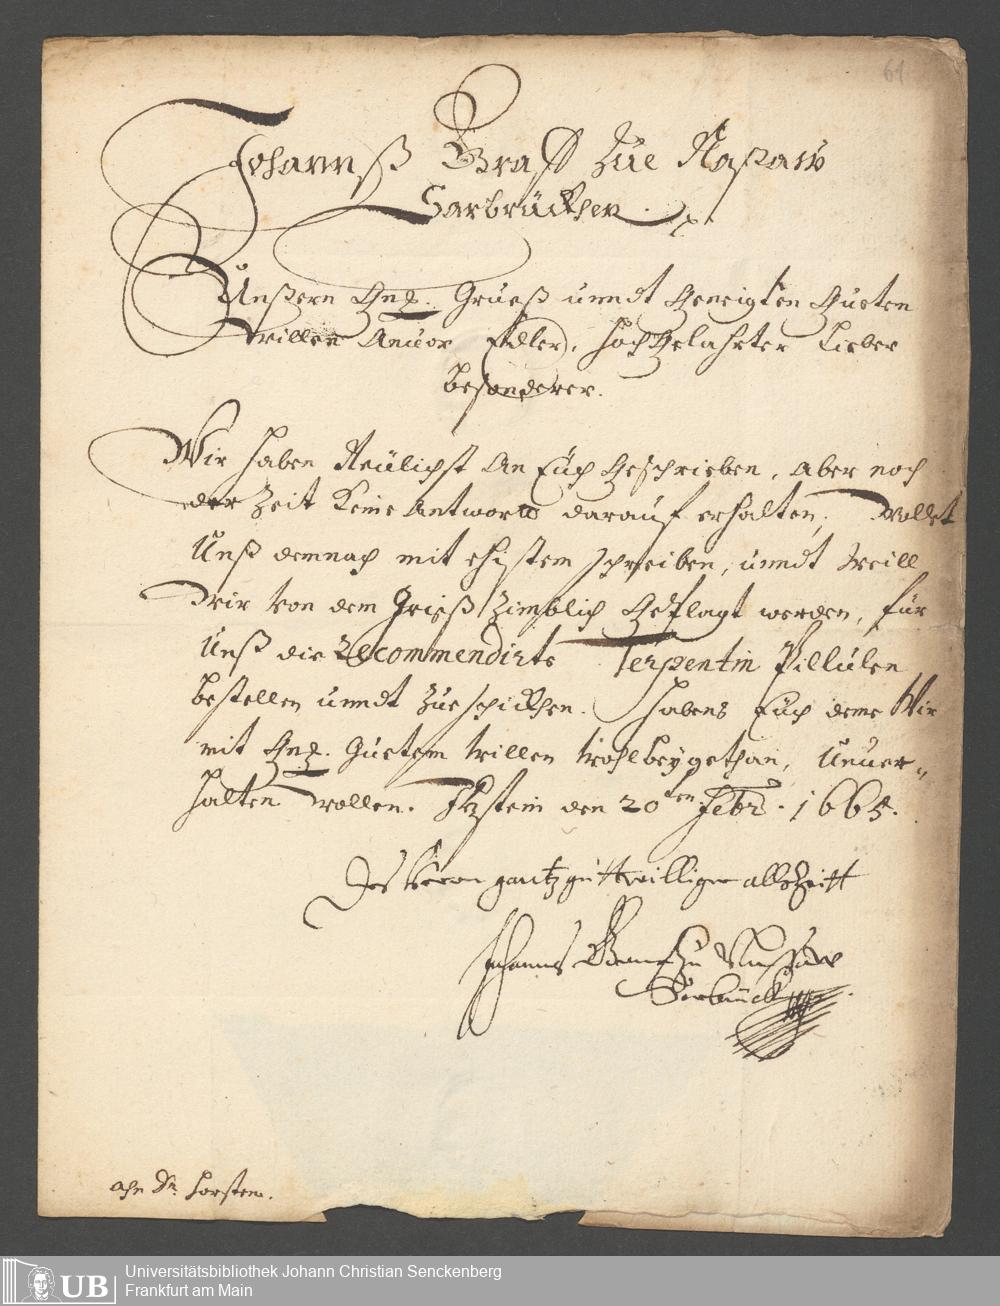 61
Johannß Graff zue Naßaw
Sarbrücken p.
Unßern Gnd. Grueß unndt Geneigten Gueten
willen Zuvor Edler, hochgelahrter Lieber
besonderer.
Wir haben Neülichst An Euch Geschrieben, Aber noch
der Zeit Keine Antwort darauf erhalten, wollet
Unß demnach mit ehistem schreiben, unndt weill
Wir von dem Grieß Zimblich Geplagt werden, für
Unß die Recommendirte Terpentin Pillülen
bestellen unndt Zueschicken. habens Euch deme Wir
mit Gnd. Guetem willen wohlbeygethan, Unver-
halten wollen. Itzstein den 20ten Febr. 1665.
Des Herrn gantz guttwilliger alle Zeitt
Johannes Grauf zu Nassaw
Sarbrück
ahn Dr. Horsten.
UB
Universitätsbibliothek Johann Christian Senckenberg
Frankfurt am Main